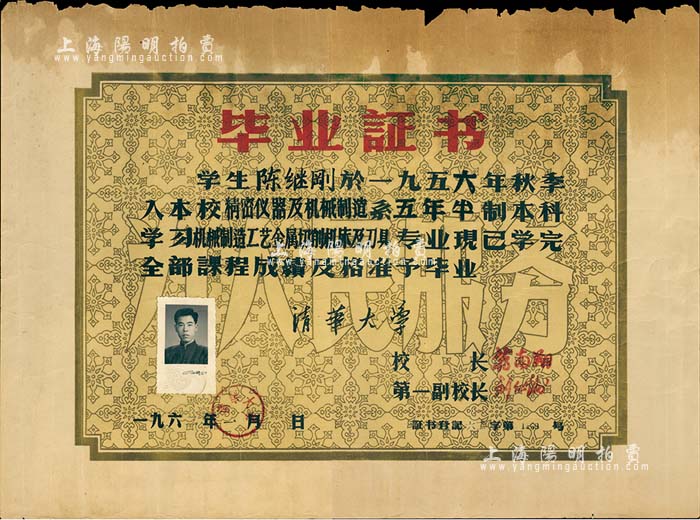 上海陽明拍賣
www.yangmingauction.com
毕业証书
学生陈继刚於一九五六年秋季
入本校精密仪器及机械制造系五年半制本科
学习机械制造工艺金属切削机床及刀具专业現已学完
全部課程成績及格准予毕业
为人民服务
清華大學
校 长 蒋南翔
第一副校长
一九六 年 月 日
証书登記 字第 号
上海陽明拍賣
www.yangmingauction.com
上海陽明拍賣
www.yangmingauction.com